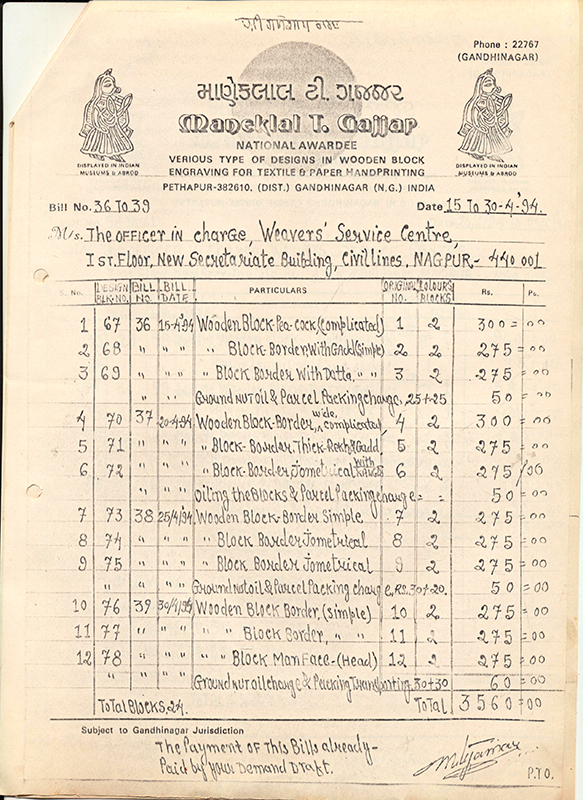 Phone : 22767
(GANDHINAGAR)
માણેકલાલ ટી. ગજ્જર
Maneklal T. Gajjar
NATIONAL AWARDEE
VERIOUS TYPE OF DESIGNS IN WOODEN BLOCK
ENGRAVING FOR TEXTILE & PAPER HANDPRINTING
PETHAPUR-382610. (DIST.) GANDHINAGAR (N.G.) INDIA
DISPLAYED IN INDIAN MUSEUMS & ABROD
DISPLAYED IN INDIAN MUSEUMS & ABROD
Bill No. 36 To 39 Date 15 To 30-4-'94.
M/s. The OFFICER IN charge, Weavers' Service Centre,
Ist. Floor, New Secretariate Building, Civil lines, NAGPUR - 440 001
S. No. DESIGN BLK-NO. BILL NO. BILL DATE PARTICULARS ORIGINAL NO. COLOURS BLOCKS Rs. Ps.
1 67 36 15-4-'94 Wooden Block-Pea-cock, (complicated) 1 2 300=00
2 68 " " " " Block-Border, With Gadd (Simple) 2 2 275=00
3 69 " " " " Block Border With Datta, " " 3 2 275=00
" " " " Ground nut oil & Parcel Packing charge, 25+25 50=00
4 70 37 20-4-94 Wooden Block-Border, wide, complicated, 4 2 300=00
5 71 " " " " Block-Border, Thick-Rekh & Gadd 5 2 275=00
6 72 " " " " Block-Border, Jometrical with 6 2 275/00
" " " Oiling the Blocks & Parcel Packing charge = - 50=00
7 73 38 25/4/'94 Wooden Block-Border Simple 7 2 275=00
8 74 " " " " Block Border Jometrical 8 2 275=00
9 75 " " " " Block Border Jometrical 9 2 275=00
" " " " Ground nut oil & Parcel Packing charge, RS. 30+20. 50=00
10 76 39 30/4/94 Wooden Block Border, (simple) 10 2 275=00
11 77 " " " " " Block Border, " " 11 2 275=00
12 78 " " " " " Block Man Face-(Head) 12 2 275=00
" " " " Ground nut oil charge & Packing Transporting. 30+30 60=00
Total Blocks, 24. Total 3560=00
Subject to Gandhinagar Jurisdiction
The Payment of This Bills already-
Paid by your Demand Draft.
P.T.O.